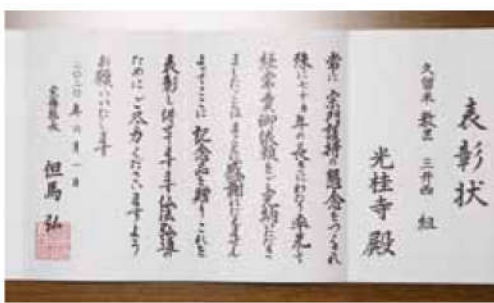 表彰状
久留米 教区 三井西 組
光桂寺 殿
常に 宗門護持の懇念をつくされ
殊に七十
年の長きにわたり率先して
経常費御依頼をご完納になり
ましたことはまことに感謝にたえません
よってここに 記念品を贈り これを
表彰し併せてますます仏法弘通の
ためにご尽力くださいますよう
お願いいたします
二〇二〇年 六月 一日
宗務総長
但馬 弘